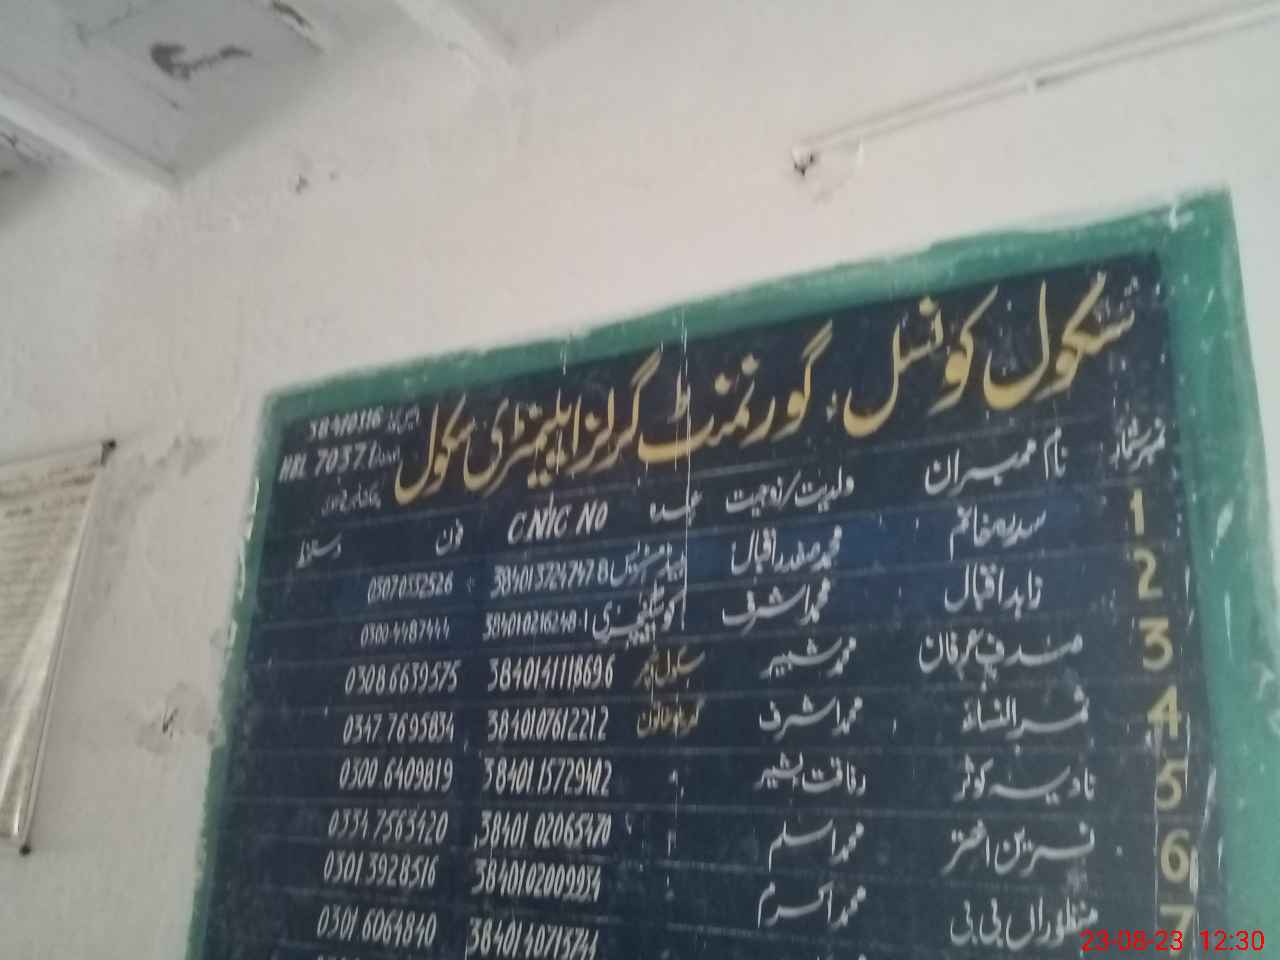 سکول کونسل، گورنمنٹ گرلز ایلیمنٹری سکول
38410116
HBL 7037
نمبر شمار نام ممبران ولدیت/زوجیت عہدہ CNIC No فون دستخط
1 سدرہ خانم محمد صفدر اقبال ہیڈ مسٹریس 38401 3724747-8 0307 0332526
2 زاہد اقبال محمد اشرف 38401 0216248-1 0300-4487444
3 صدف عرفان محمد شبیر سکول ٹیچر 3840141118696 0308 6639575
4 ثمر النساء محمد اشرف 3840107612212 0347 7695834
5 نادیہ کوثر رفاقت بشیر 〃 38401 15729402 0300 6409819
6 نسرین اختر محمد اسلم 〃 38401 02065470 0334 7563420
7 منظوراں بی بی محمد اکرم 〃 3840102009934 0301 3928516
3840140715744 0301 6064840
23-08-23 12:30